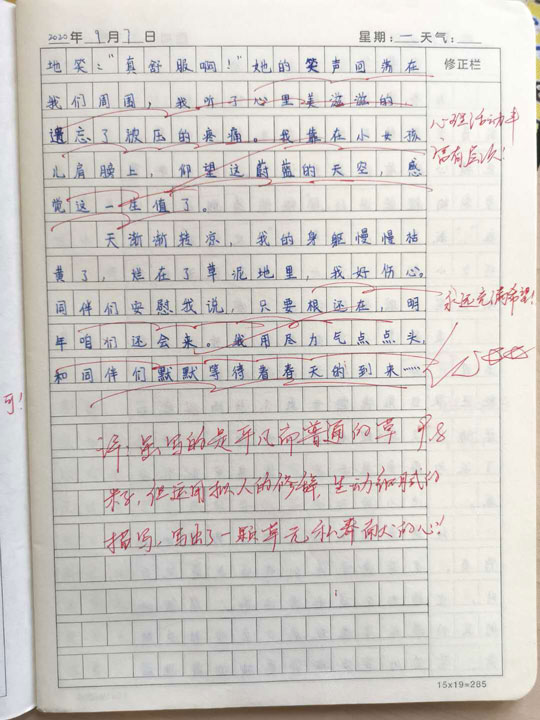 2020年9月7日 星期:一 天气:
修正栏
地笑:“真舒服啊!”她的笑声回荡在
我们周围,我听了心里美滋滋的
遗忘了被压的疼痛。我靠在小女孩
儿肩膀上,仰望这蔚蓝的天空,感
觉这一生值了。
心理活动丰
富有层次!
天渐渐转凉,我的身躯慢慢枯
黄了,烂在了草泥地里,我好伤心。
同伴们安慰我说,只要根还在,明
年咱们还会来。我用尽力气点点头,
和同伴们默默等待着春天的到来……
永远充满希望!
可!
评:虽写的是平凡而普通的草
但运用拟人的修辞,生动细腻的
描写,写出了一颗草无私奉献的心!
15x19=285